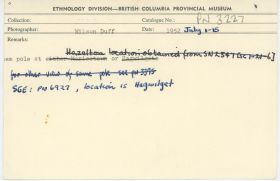 ETHNOLOGY DIVISION—BRITISH COLUMBIA PROVINCIAL MUSEUM
Collection Catalogue No.: PN 3227
Photographer: Wilson Duff Date: 1952 July 1-15
Remarks:
Hazelton location obtained from
pole at or
for other view of same pole see PN 3975
SEE: PN 6927, location is Hagwilget